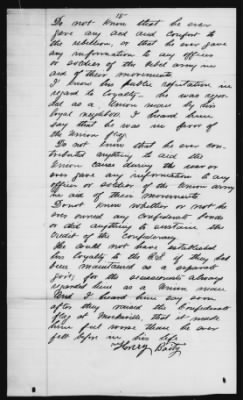 15
Do not know that he ever
gave any aid and comfort to
the rebellion, or that he ever gave
any information to any officer
or soldier of the Rebel army in
aid of their movements
I know his public reputation in
regard to loyalty. He was regar
ded as a Union man by his
loyal neighbors I heard him
say that he was in favor of
the Union flag.
Do not know that he ever con-
tributed anything to aid the
Union cause during the war or
ever gave any information to any
officer or soldier of the Union army
in aid of their movements
Do not know whether or not he
ever owned any Confederate bonds
or did anything to sustain the
credit of the Confederacy.
He could not have established
his loyalty to the C.S. if they had
been maintained as a separate
gov't, for the secessionists always
regarded him as a Union man
And I heard him say soon
after they raised the Confederate
flag at Mocksville, that it made
him feel worse than he ever
felt before in his life
Henry Baity